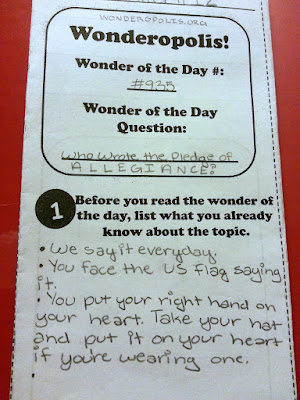 WONDEROPOLIS.ORG
Wonderopolis!
Wonder of the Day #:
#935
Wonder of the Day
Question:
Who Wrote the Pledge of
ALLEGIANCE?
1 Before you read the wonder of
the day, list what you already
know about the topic.
• We say it everyday
• You face the US flag saying
it.
• You put your right hand on
your heart. Take your hat
and put it on your heart
if you're wearing one.
•